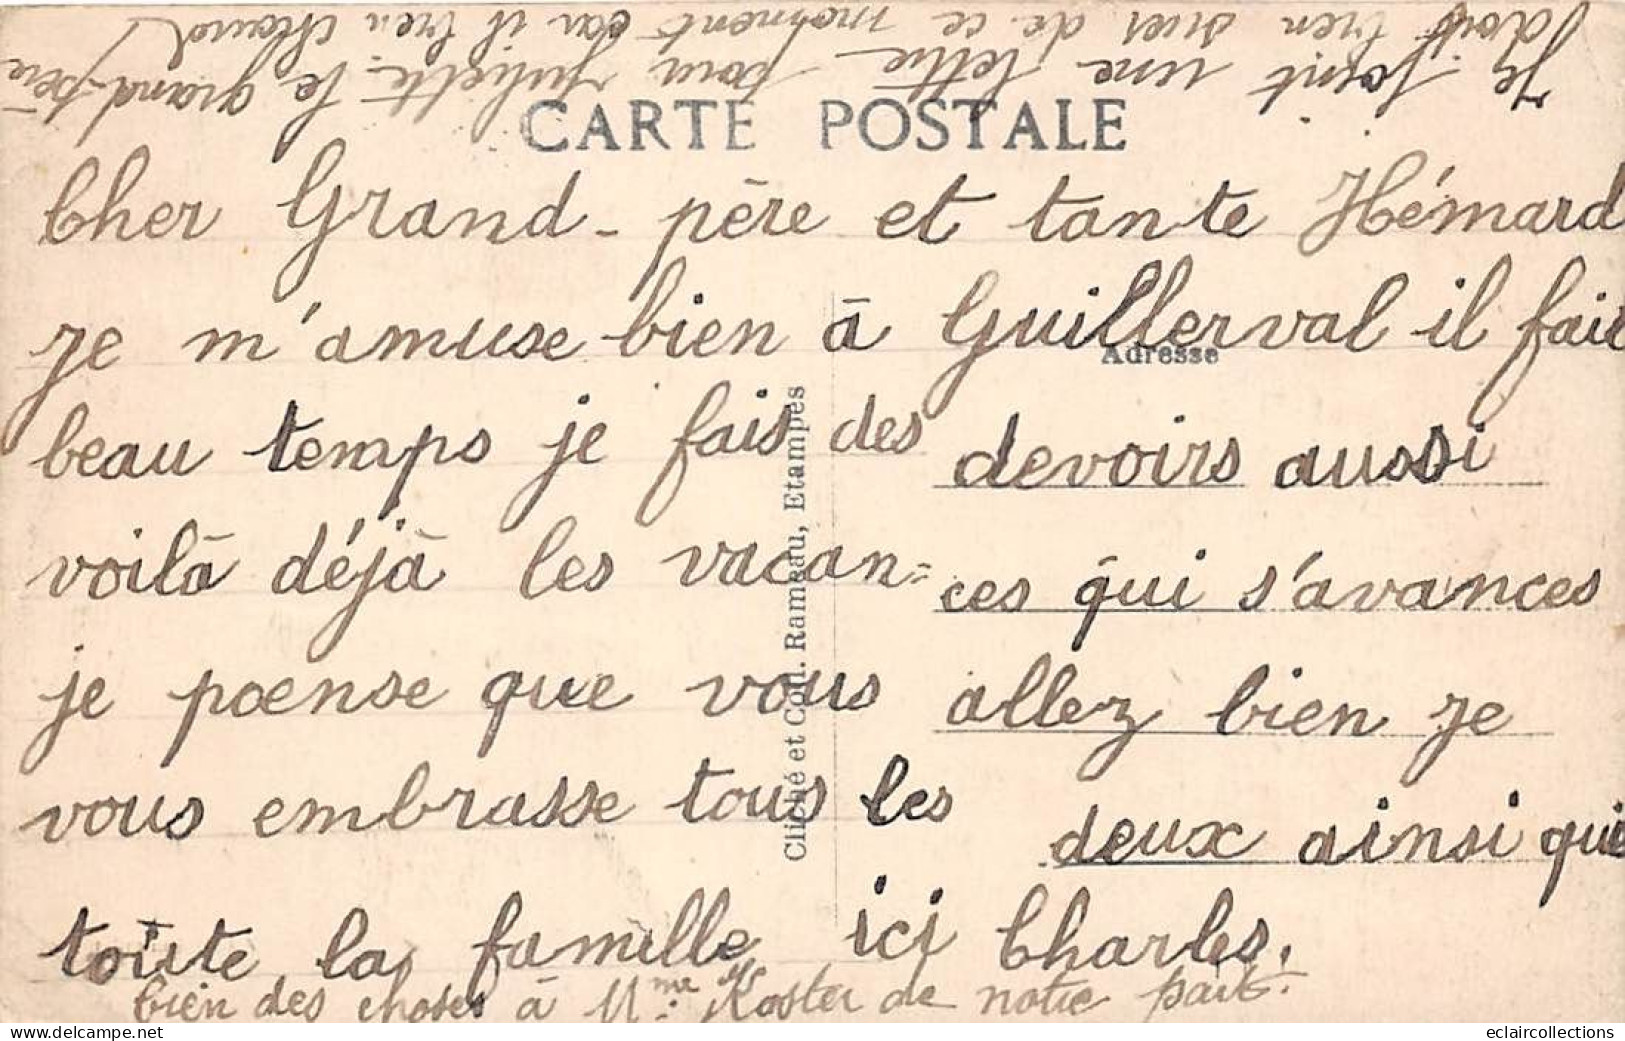 Je joint une lettre pour Juliette. le grand-père
doit bien suer de ce moment car il bien chaud
CARTE POSTALE
Cher Grand-père et tante Hémard
je m'amuse bien à Guillerval il fait
Adresse
beau temps je fais des devoirs aussi
voilà déjà les vacan= ces qui s'avances
je poense que vous allez bien je
vous embrasse tous les deux ainsi que
toute la famille ici Charles.
bien des choses à Mme Koster de notre part.
Cliché et Coll. Rameau, Etampes
eclaircollections